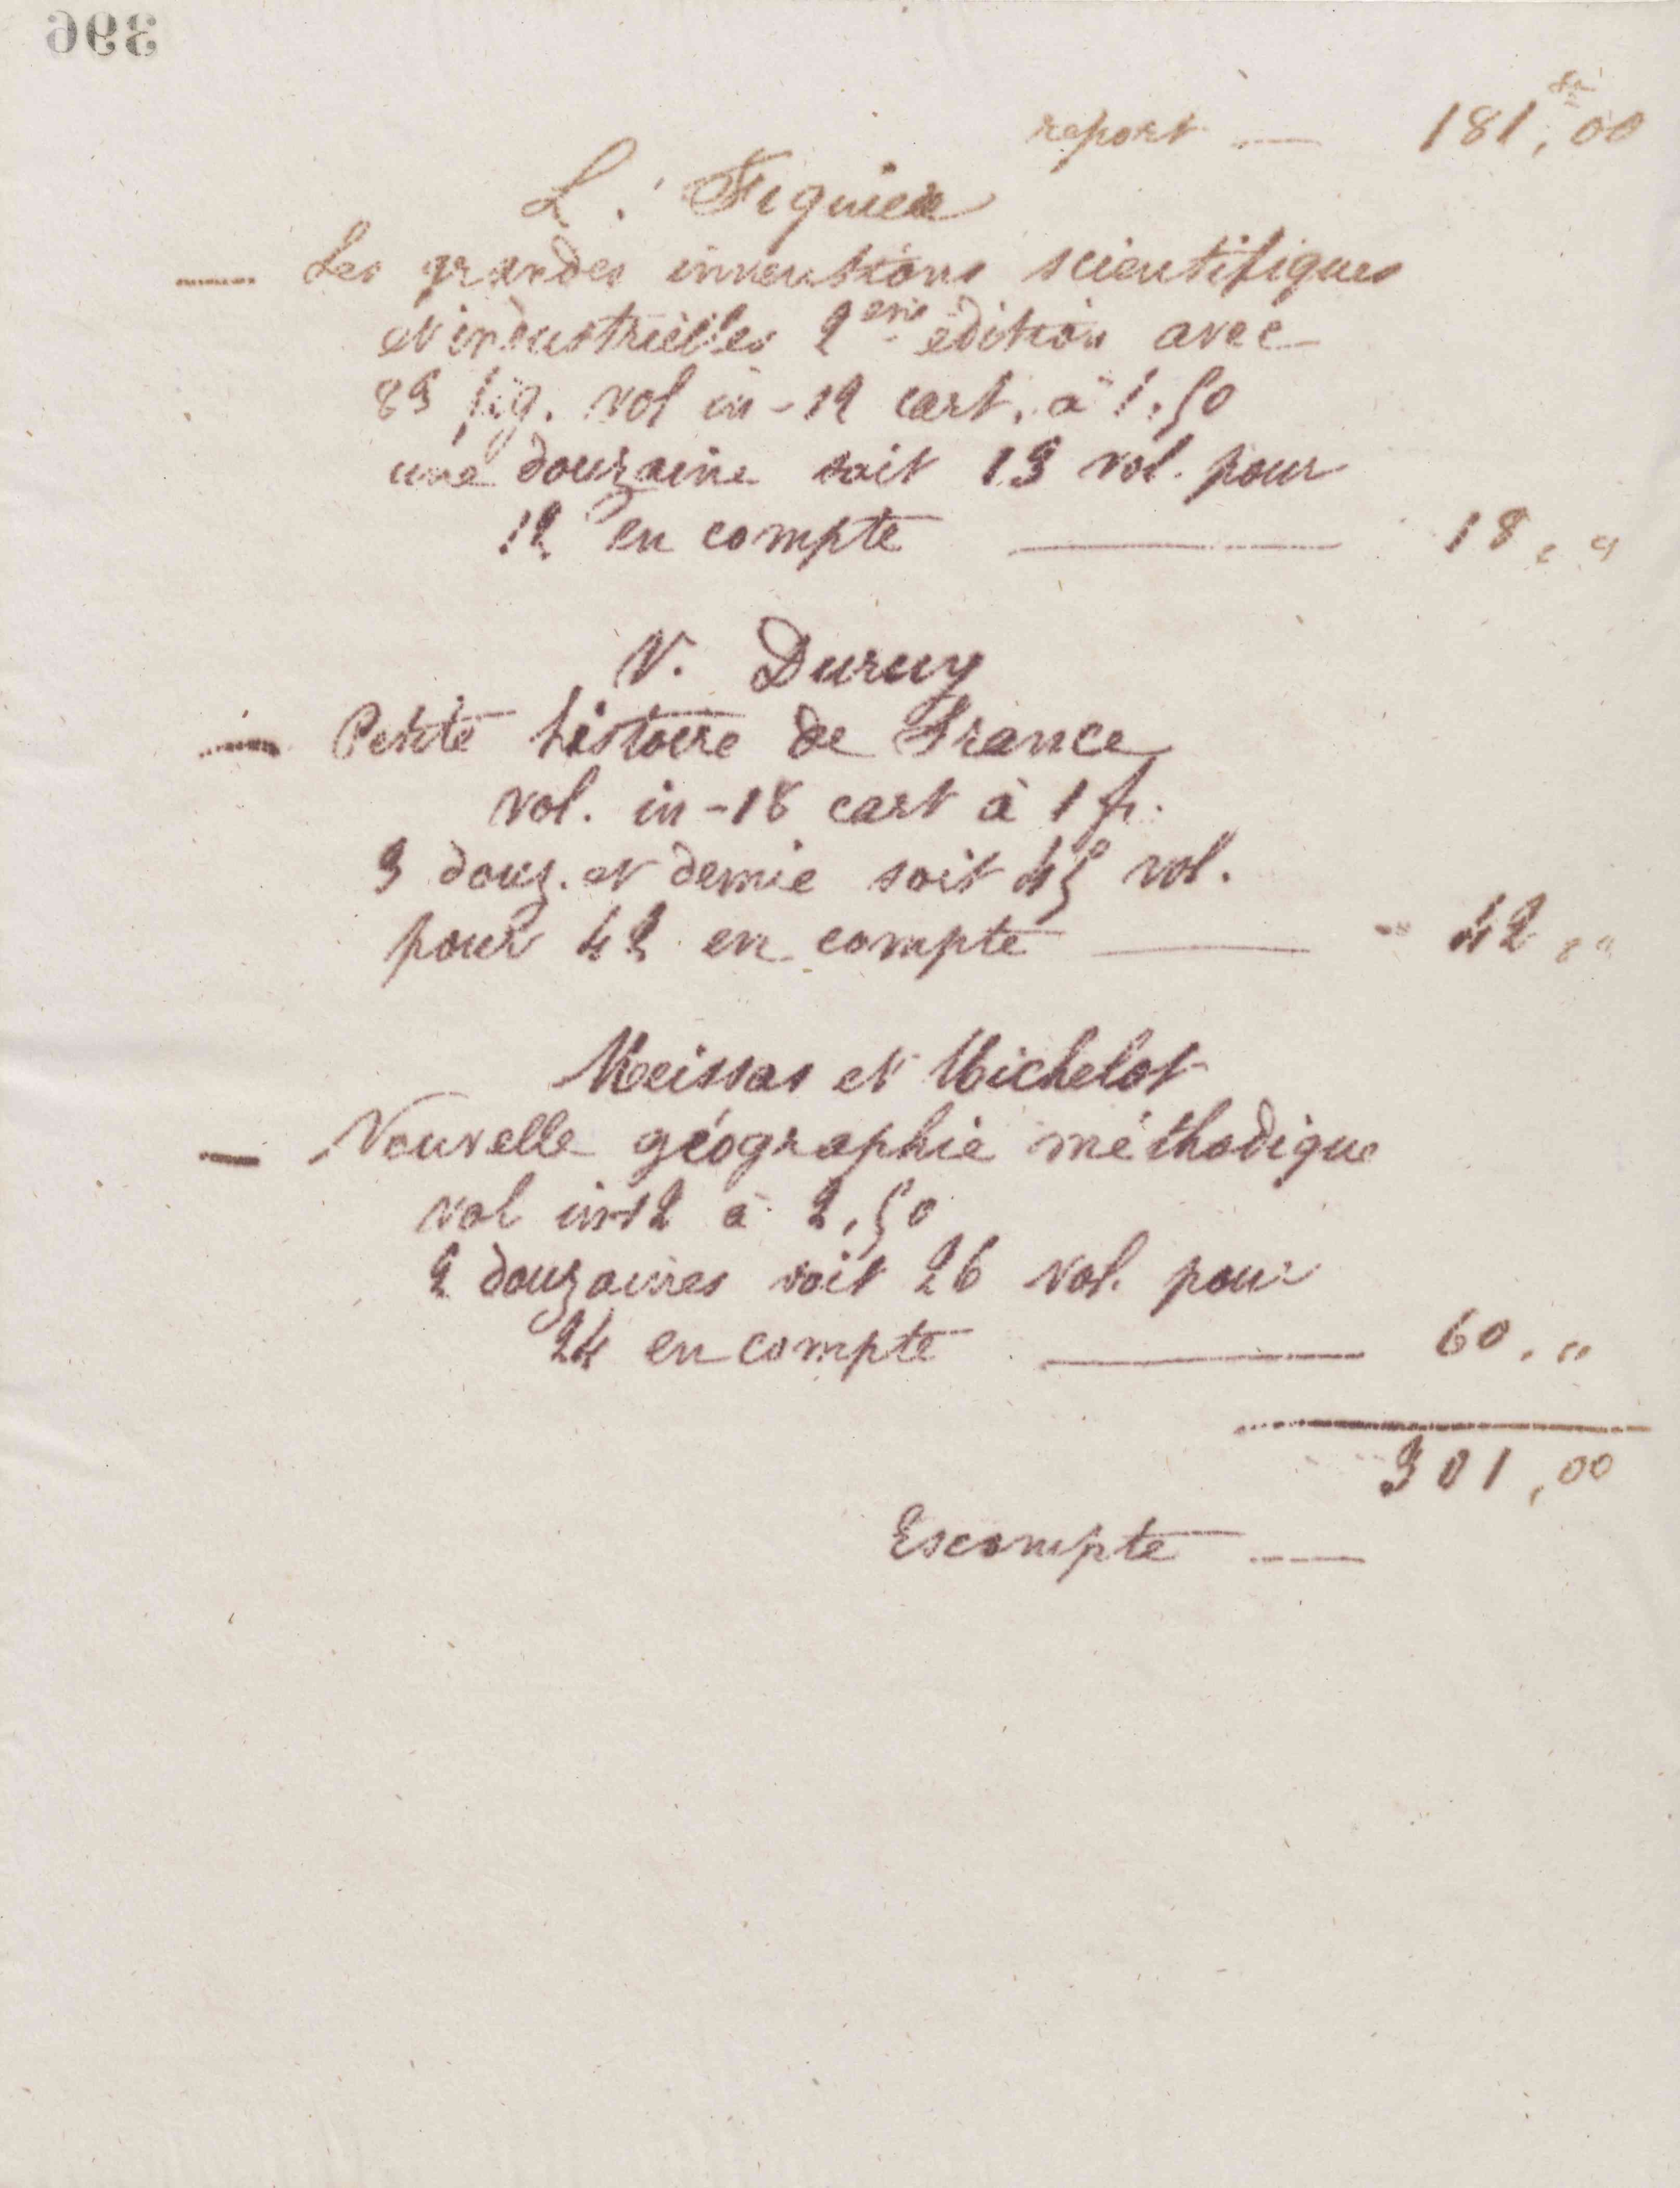 396
report — 181 fr,00
L. Figuier
— Les grandes inventions scientifiques
et industrielles 2eme edition avec
83 fig. vol in-12 cart. à 1,50
une douzaine soit 13 vol. pour
12 en compte — 18, "
V. Duruy
— Petite histoire de France
vol. in-18 cart à 1 fr.
3 douz. et demie soit 45 vol.
pour 42 en compte — 42, "
Meissas et Michelot
— Nouvelle géographie méthodique
vol in-12 à 2,50
2 douzaines soit 26 vol. pour
24 en compte — 60, "
301,00
Escompte —